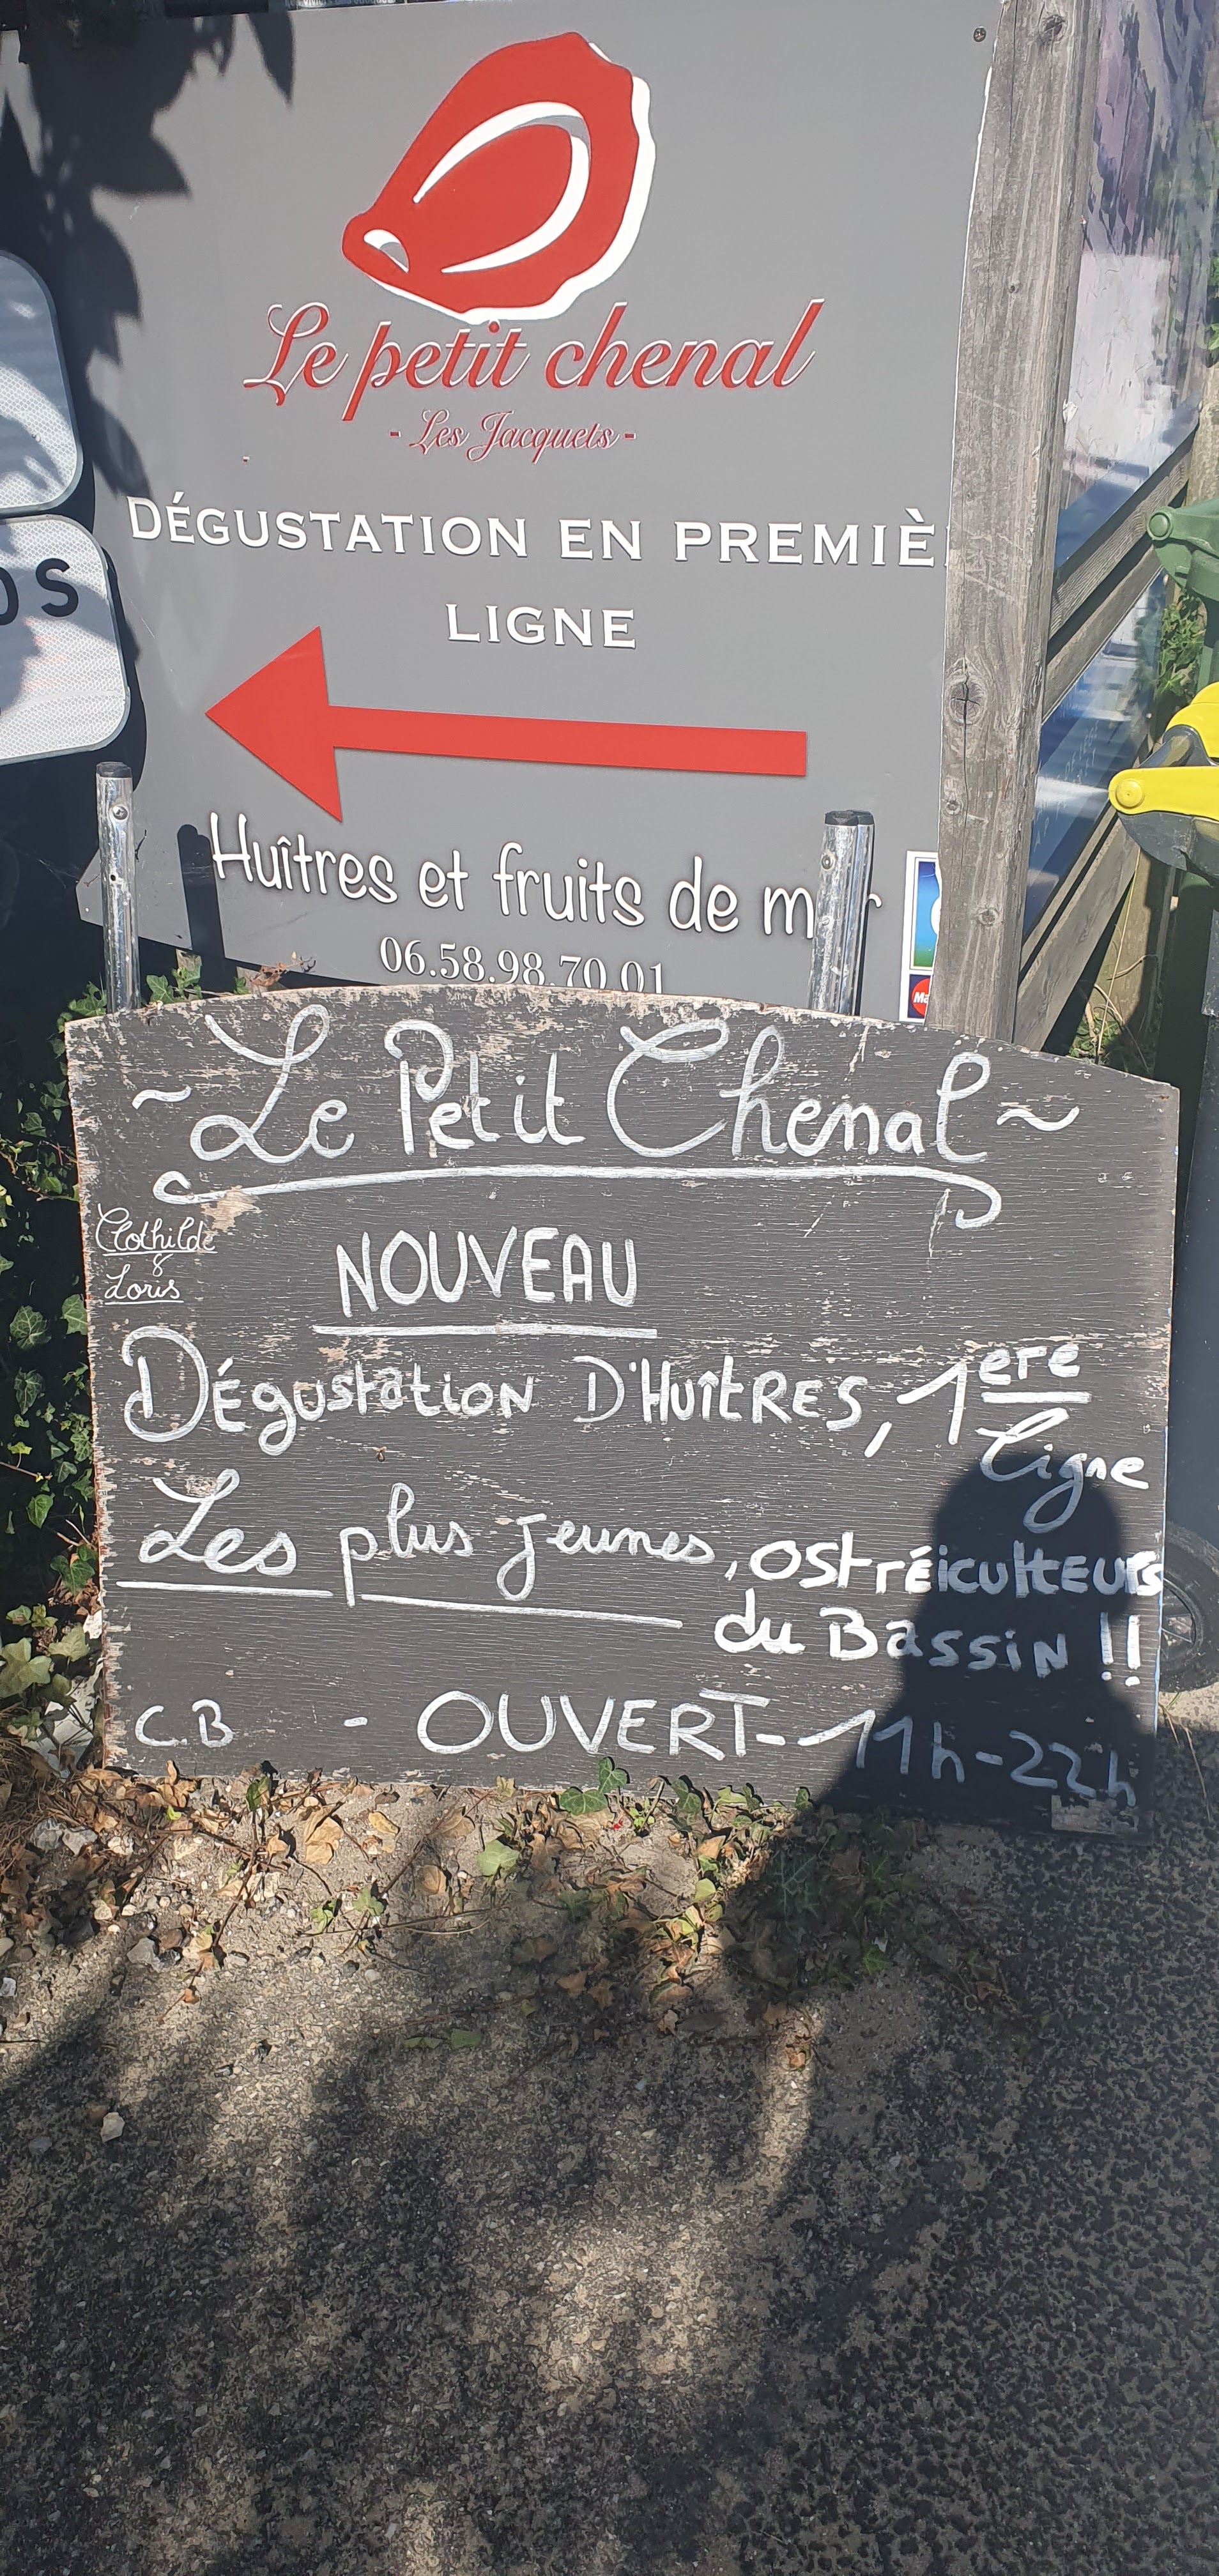 Le petit chenal
- Les Jacquets -
DÉGUSTATION EN PREMIÈ
LIGNE
OS
Huîtres et fruits de m r
06.58.98.70 01
Ma
~ Le Petit Chenal ~
Clothilde
&
Loris
NOUVEAU
DÉgustation D'HuîtRES, 1ere
Ligne
Les plus jeunes, OSTRÉICULTEURS
du BASSIN !!
C.B - OUVERT - 11h-22h